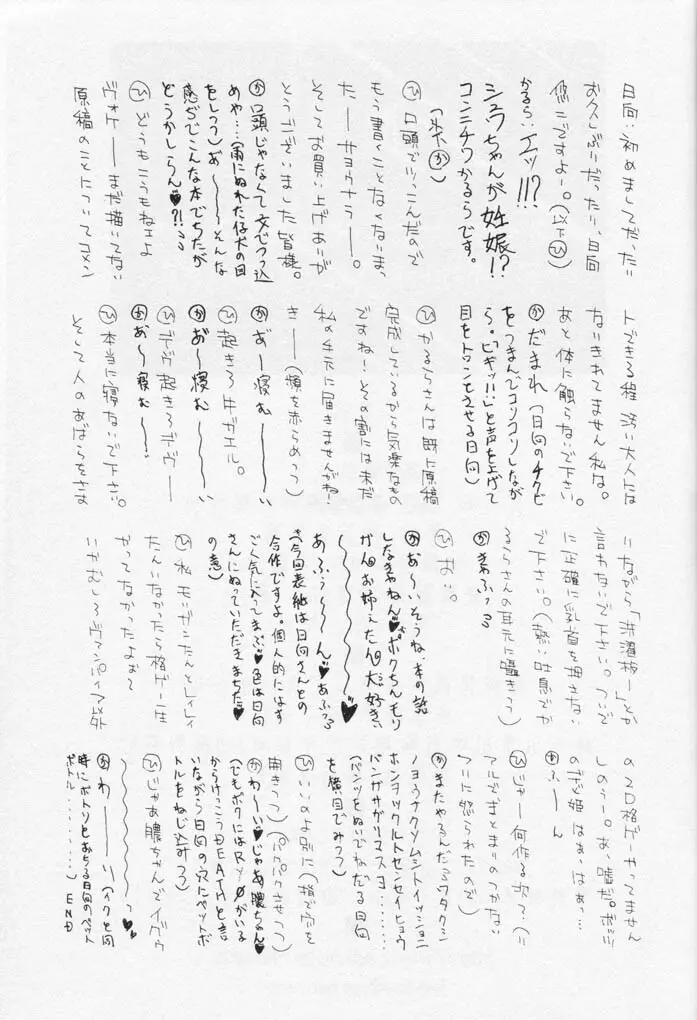 日向：初めましてだったり
お久しぶりだったり、日向
悠二ですよー。(以下ひ)
かるら：エッ!!!?
シュワちゃんが妊娠!?
コンニチワかるらです。
(以下か)
ひ 口頭でツッこんだので
もう書くことなくなりまし
た——サヨウナラ——。
そしてお買い上げありが
とうございました皆様。
か 口頭じゃなくて文でつっ込
めや…(雨にぬれた仔犬の目
をしつつ)あ〜〜〜そんな
感じでこんな本でちたが
どうかしらん♥?!
ひ どうもこうもねェよ
ヴォケ——まだ描いてない
原稿のことについてコメン
トできる程 汚い大人には
なりきれてません私は。
あと体に触らないで下さい。
か だまれ(日向のチクビ
をつまんでコリコリしなが
ら。「ピギィッ!!」と声を上げて
目をトロンとさせる日向)
ひ かるらさんは既に原稿
完成しているから気楽なもの
ですね！その割には未だ
私の手元に届きませんがね！
きー(頬を赤らめつつ)
か あ゛ー寝むーーい
ひ 起きろ 牛ガエル。
か あ゛〜寝むーーい
ひ デヴ起きろデヴ——
か あ゛〜寝む〜〜
ひ 本当に寝ないで下さい。
そして人のあばらをさす
りながら「洗濯板ー」とか
言わないで下さい。ついで
に正確に乳首を押さない
で下さい。(熱い吐息でか
るらさんの耳元に囁きつつ)
か きゃふっ
ひ おい。
か あ〜いそうね、本の話
しなきゃねん♥ボクちんモリ
ガンお姉たん大好き
〜〜〜〜♥
あふぅ〜〜ん♥あふっ
(今回表紙は日向さんとの
合作ですよ。個人的にはす
ごく気に入ってまふ♥色は日向
さんにぬっていただきまちた♥
の意)
ひ 私モリガンたんとレイレイ
たんいなかったら格ゲー一生
やってなかったよおー
いやむしろヴァンパイア以外
の2D格ゲーやってません
しのうー。あ、嘘だ。
のぎ姫はぁ、はぁっ…
か ふーん
ひ じゃー何作る次ァ？(リ
アルでぎとまりのつかない
フリに怒られたので)
か またやるんだろワタクシ
ノヨウナクソムシトイッショニ
ホンヲツクルトセンセイヒョウ
バンガサガリマスヨ………
(パンツをぬいでねだる日向
を横目でみつつ)
ひ いいのよ別に(指で穴を
開きつつ)(パクパクさせつつ)
か わーい♥じゃあ膿ちゃん♥
(でもボクにはRY・Øがいる
からけっこうDEATHと言
いながら日向の穴にペットボ
トルをねじ込みつつ)
ひ じゃあ膿ちゃんでイグゥ
〜〜〜〜〜っ♥♥
か わーーーい(イクと同
時にボトリとおちる日向のペット
ボトル………) END